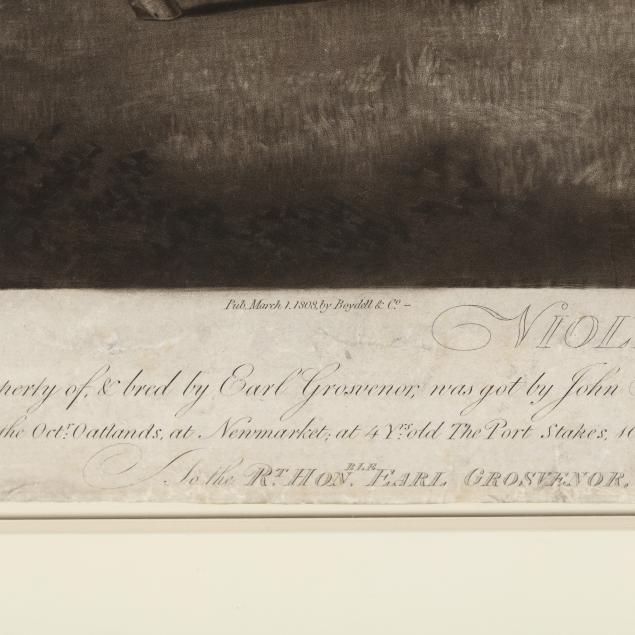 Pub. March 1. 1808, by Boydell & Co. –
VIOL
perty of, & bred by Earl Grosvenor, was got by John
the Octr. Oatlands, at Newmarket; at 4 Yrs. old The Port Stakes, 10
To the RT. HONBLE. EARL GROSVENOR,